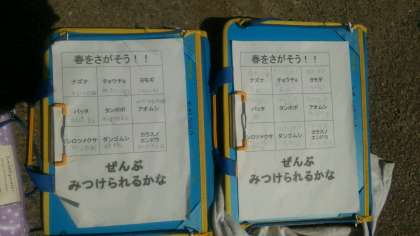 春をさがそう！！
ナズナ チョウチョ ヨモギ
バッタ タンポポ アオムシ
シロツメクサ ダンゴムシ カラスノエンドウ
ぜんぶ
みつけられるかな
春をさがそう！！
ナズナ チョウチョ ヨモギ
バッタ タンポポ アオムシ
シロツメクサ ダンゴムシ カラスノ
エンドウ
ぜんぶ
みつけられるかな